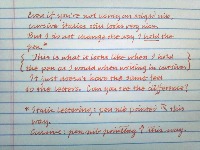 Even if you're not using an angled nib,
cursive italics can look very nice.
But I do not change the way I hold the
pen."
{ This is what it looks like when I hold
the pen as I would when writing in cursive.}
It just doesn't have the same feel
to the letters. Can you see the difference?
* Italic Lettering: pen nib points this
way.
Cursive: pen nib pointing ↑ this way.